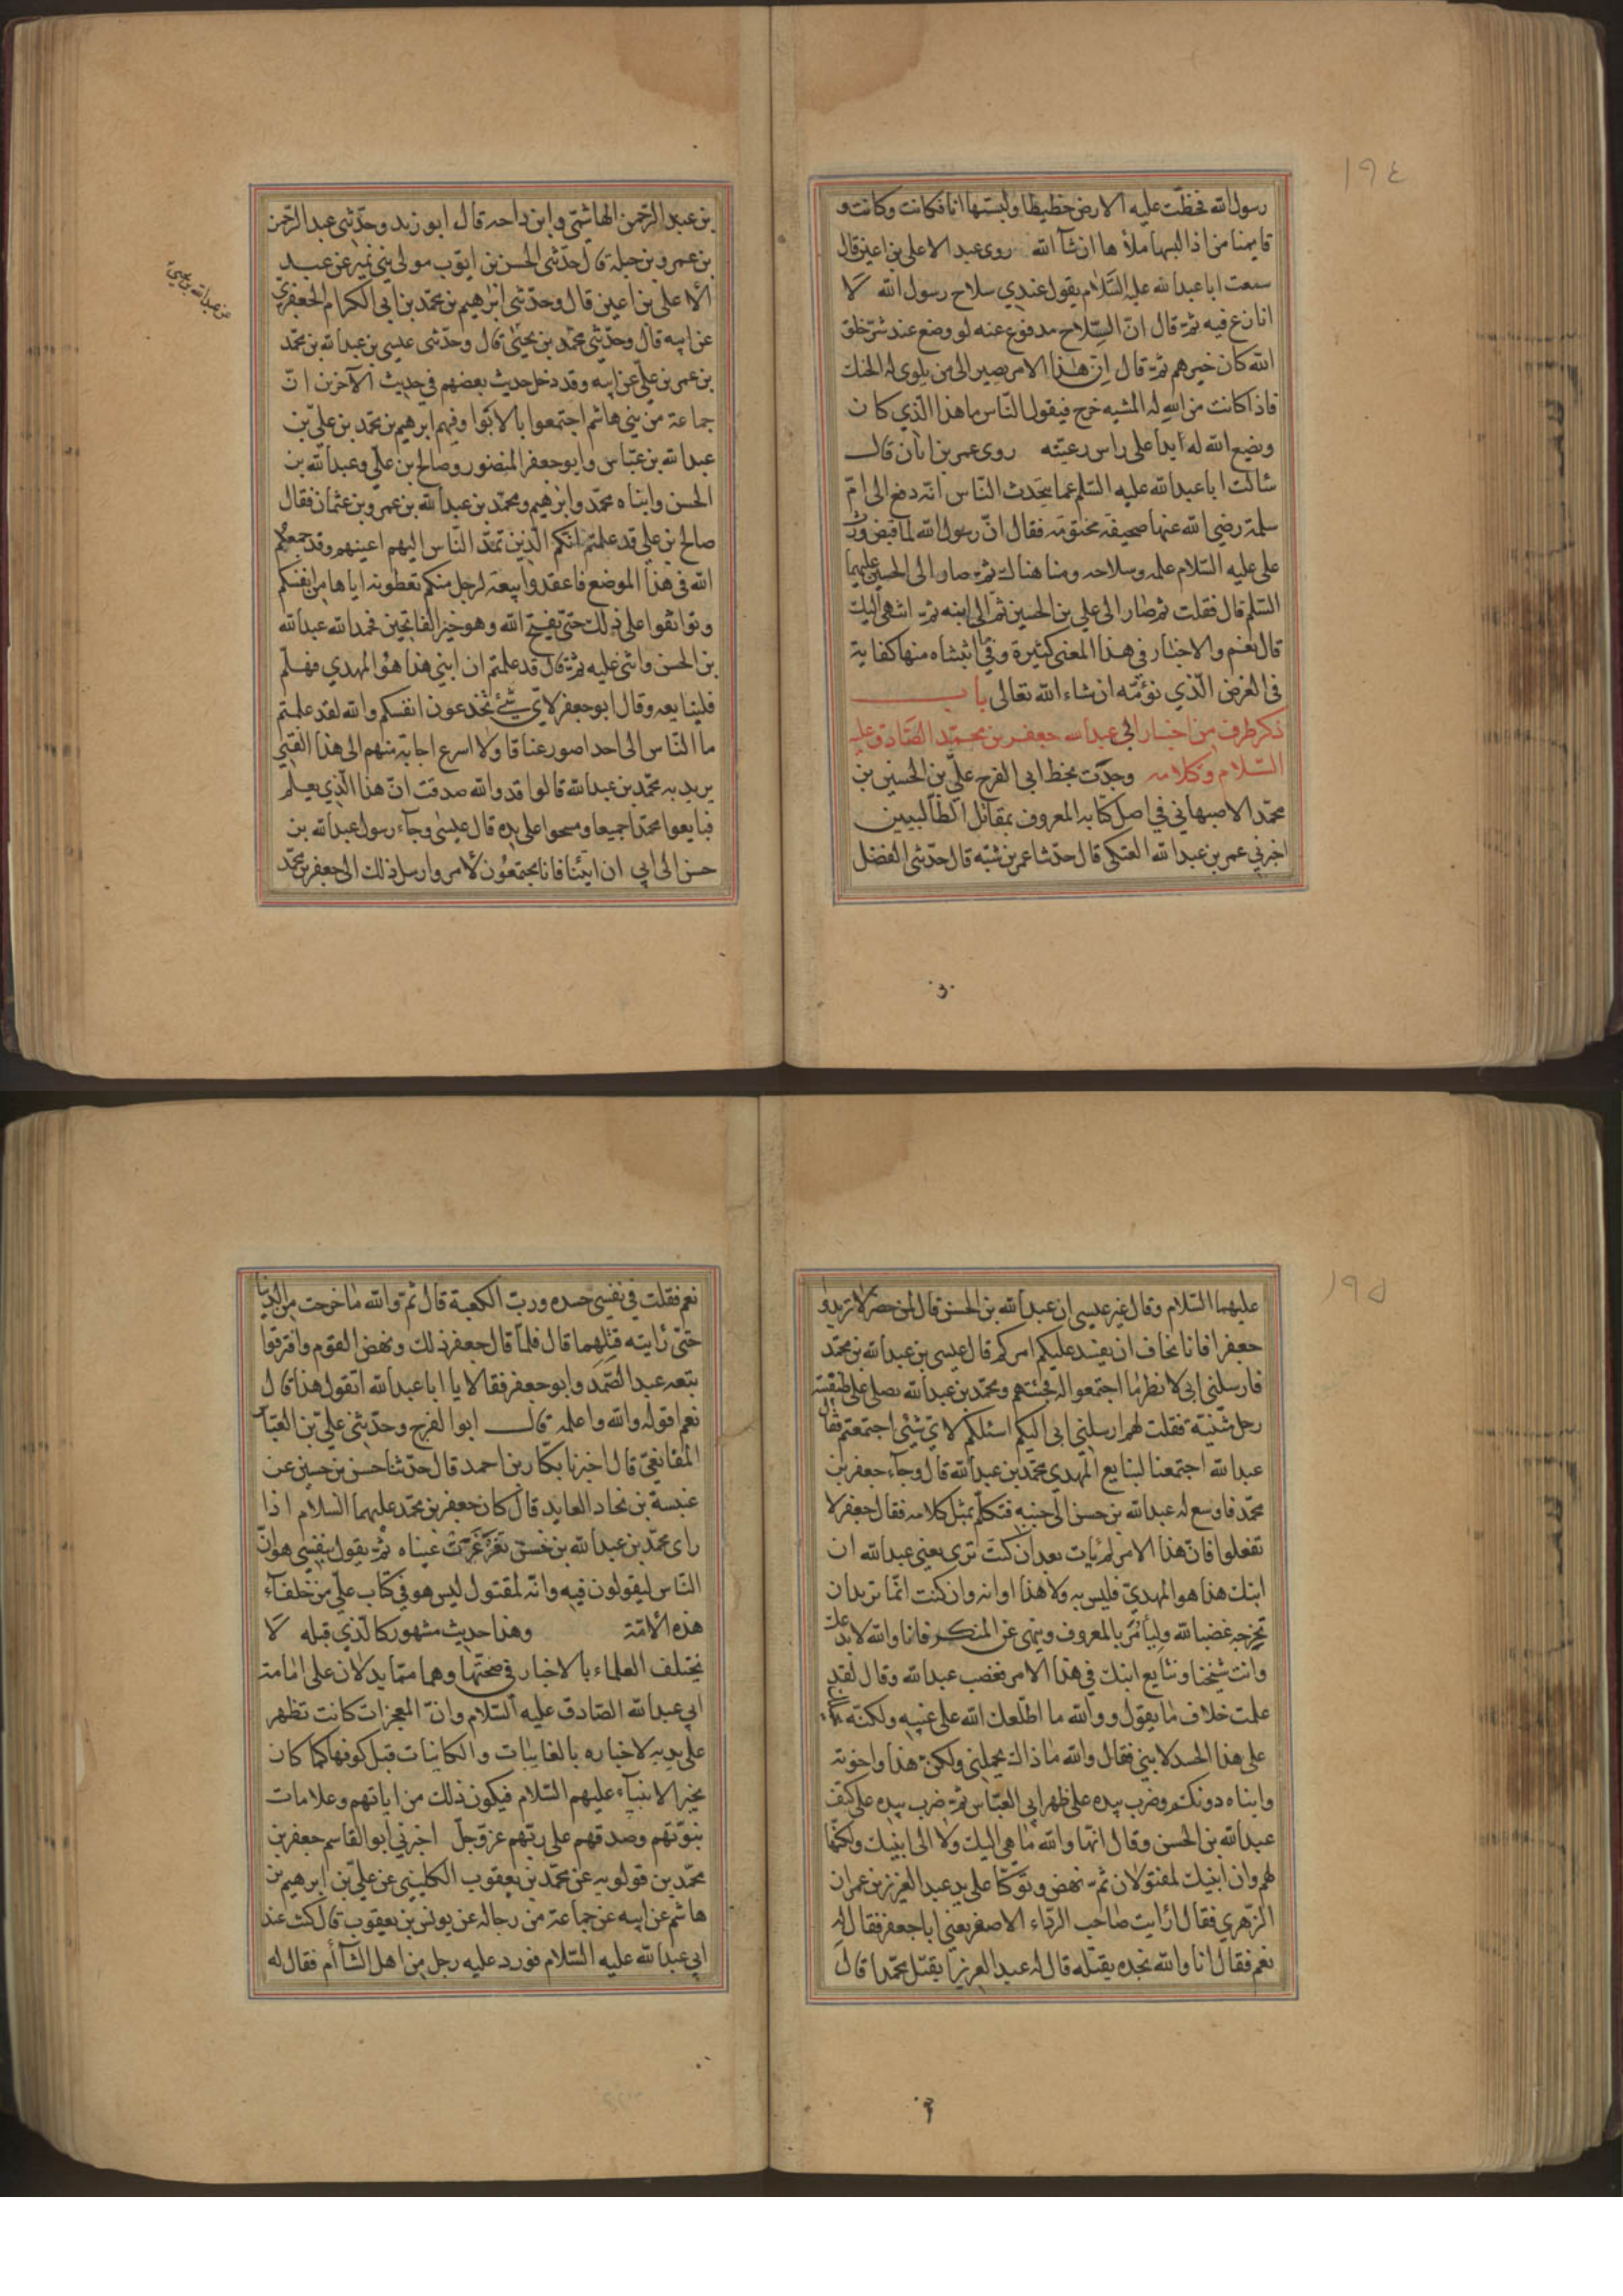 ١٩٤
رسول الله فخطّت عليه الارض خطيطا ولبستها انا فكانت وكانت و
قايمنا من اذا لبسها ملأها ان شآ الله روى عبد الاعلى بن اعين قال
سمعت ابا عبد الله عليه السّلام يقول عندي سلاح رسول الله لا
انازع فيه ثمّ قال انّ السّلاح مدفوع عنه لو وضع عند شرّ خلق
الله كان خيرهم ثمّ قال انّ هٰذا الامر يصير الى من يلوى له الحنك
فاذا كانت من الله له المشيه خرج فيقول النّاس ما هذا الّذي كان
ويضع الله له ابدا على راس رعيّته روى عمر بن ابان قال
سالت ابا عبد الله عليه السّلم عما يتحدث النّاس انّه دفع الى امّ
سلمة رضي الله عنها صحيفة مختومة فقال انّ رسول الله لما قبض ورث
على عليه السّلام علمه وسلاحه وما هناك ثمّ صار الى الحسين عليهما
السّلم قال فقلت ثم صار الى علي بن الحسين ثمّ الى ابنه ثمّ انتهى اليك
قال نعم والاخبار في هذا المعنى كثيرة وفي ما اثبتناه منها كفاية
في الغرض الّذي نؤمّه ان شاء الله تعالى باب
ذكر طرف من اخبار ابى عبد الله جعفر بن محمّد الصّادق عليه
السّلام وكلامه وجدت بخط ابى الفرج علىّ بن الحسين بن
محمّد الاصبهاني في اصل كتابه المعروف بمقاتل الطّالبيين
اخبرني عمر بن عبد الله العتكى قال حدّثنا عمر بن شبّه قال حدّثنى الفضل
بن عبد الرّحمن الهاشمّي وابن داحه قال ابو زيد وحدّثنى عبد الرّحمن
بن عمرو بن جبلة قال حدّثنى الحسن بن ايّوب مولى بني نمير عن عبد
الأعلى بن اعين قال وحدّثنى ابرٰهيم بن محمّد بن ابى الكرام الجعفريّ
عن ابيه قال وحدّثنى محمّد بن يحيىٰ قال وحدّثنى عيسى بن عبد الله بن محمّد
بن عمر بن علىّ عن ابيه وقد دخل حديث بعضهم في حديث الآخرين انّ
جماعة من بني هاشم اجتمعوا بالابوا وفيهم ابرٰهيم بن محمّد بن علىّ بن
عبد الله بن عبّاس وابو جعفر المنصور وصالح بن علّي وعبد الله بن
الحسن وابناه محمّد وابرٰهيم ومحمّد بن عبد الله بن عمرو بن عثمان فقال
صالح بن علي قد علمتم انّكم الّذين تمدّ النّاس اليهم اعينهم وقد جمعكم
الله في هذا الموضع فاعقدوا بيعة لرجل منكم تعطونه اياها من انفسكم
وتواثقوا على ذلك حتّى يفتح الله وهو خير الفاتحين فحمد الله عبد الله
بن الحسن واثنى عليه ثمّ قال قد علمتم ان ابني هذا هو المهدي فهلّم
فلنبايعه وقال ابو جعفر لاي شئ تخدعون انفسكم والله لقد علمتم
ما النّاس الى احد اصور عناقا ولا اسرع اجابة منهم الى هذا الفتى
يريد به محمّد بن عبد الله قالوا قد والله صدقت انّ هذا الّذي يعلم
فبايعوا محمّدا جميعا ومسحوا على يده قال عيسى وجآء رسول عبد الله بن
حسن الى ابي ان ايتنا فانا مجتمعون لأمر وارسل ذلك الى جعفر بن محمّد
١٩٥
عليهما السّلام وقال غير عيسى ان عبد الله بن الحسن قال لمن حضر لا تريدوا
جعفرا فانا نخاف ان يفسد عليكم امركم قال عيسى بن عبد الله بن محمّد
فارسلنى ابى لانظر ما اجتمعوا له فجئتهم ومحمّد بن عبد الله يصلى على طنفسة
رحل مثنية فقلت لهم ارسلني ابى اليكم اسئلكم لايّ شئى اجتمعتم فقال
عبد الله اجتمعنا لنبايع المهدي محمّد بن عبد الله قال وجآء جعفر بن
محمّد فاوسع له عبد الله بن حسن الى جنبه فتكلّم بمثل كلامه فقال جعفر لا
تفعلوا فانّ هذا الامر لم يات بعد ان كنت ترى يعنى عبد الله ان
ابنك هذا هو المهديّ فليس به ولا هذا اوانه وان كنت انّما تريد ان
تخرجه غضبا لله وليأمر بالمعروف وينهى عن المنكر فانا والله لا ندعك
وانت شيخنا ونبايع ابنك في هذا الامر فغضب عبد الله وقال لقد
علمت خلاف ما يقول ووالله ما اطّلعك الله على غيبه ولكنّه
على هذا الحسد لابني فقال والله ما ذاك يحملني ولكن هذا واخوته
وابناه دونكم وضرب بيده على ظهر ابى العبّاس ثمّ ضرب بيده على كتف
عبد الله بن الحسن وقال انّها والله ما هي اليك ولا الى ابنيك ولكنّها
لهم وان ابنيك لمقتولان ثمّ نهض وتوكّا على يد عبد العزيز بن عمران
الزّهري فقال ارايت صاحب الرّداء الاصفر يعني ابا جعفر فقال له
نعم فقال انا والله نجده يقتله قال له عبد العزيز ايقتل محمّدا قال
نعم فقلت في نفسي حسده وربّ الكعبة قال ثمّ والله ما خرجت من الدنيا
حتّى رايته قتلهما قال فلمّا قال جعفر ذلك ونهض القوم وافترقوا
تبعه عبد الصّمد وابو جعفر فقالا يا ابا عبد الله اتقول هذا قال
نعم اقوله والله واعلمه قال ابو الفرج وحدّثنى علىّ بن العبّاس
المقانعيّ قال اخبرنا بكّار بن احمد قال حدّثنا حسن بن حسين عن
عنبسة بن نجاد العابد قال كان جعفر بن محمّد عليهما السّلام اذا
راى محمّد بن عبد الله بن حسن تغرغرت عيناه ثمّ يقول بنفسي هو انّ
النّاس ليقولون فيه وانّه لمقتول ليس هو في كتاب علّي من خلفآء
هذه الأمّة وهذا حديث مشهور كالّذي قبله لا
يختلف العلماء بالاخبار في صحّتها وهما ممّا يدلان على امامة
ابي عبد الله الصّادق عليه السّلام وانّ المعجزات كانت تظهر
على يديه لاخباره بالغايبات والكاينات قبل كونها كما كان
يخبر الانبيآء عليهم السّلام فيكون ذلك من اياتهم وعلامات
نبوّتهم وصدقهم على ربّهم عزّ وجلّ اخبرني ابو القاسم جعفر بن
محمّد بن قولويه عن محمّد بن يعقوب الكليني عن علىّ بن ابرٰهيم بن
هاشم عن ابيه عن جماعة من رجاله عن يونس بن يعقوب قال كنت عند
ابي عبد الله عليه السّلام فورد عليه رجل من اهل الشّام فقال له